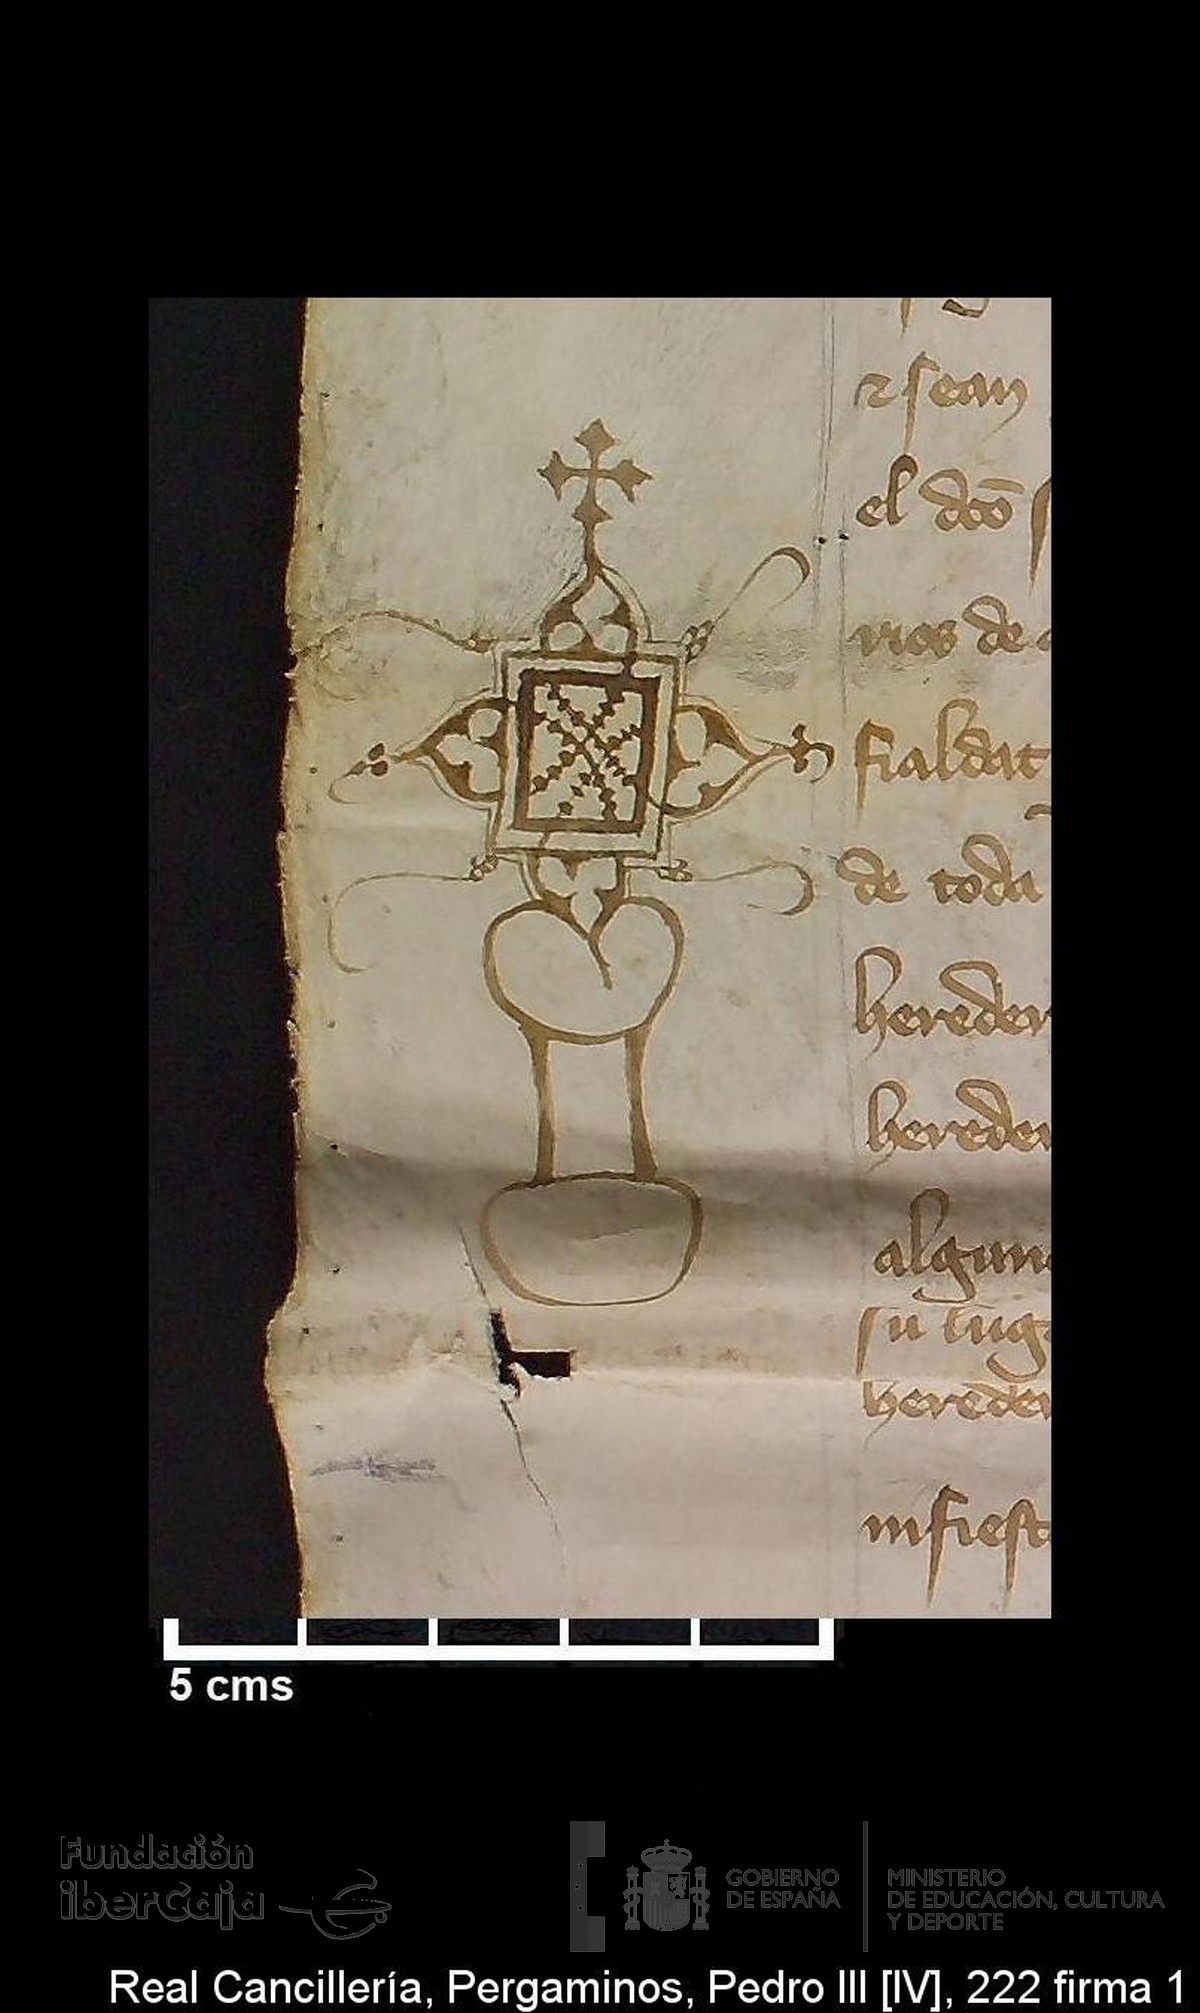 ⁊ sean
el dc̄o
rios de
fialdat
de toda
hereder
hereder
algun
su lug
hereder
mfiest
5 cms
Fundación
iberCaja
GOBIERNO
DE ESPAÑA
MINISTERIO
DE EDUCACIÓN, CULTURA
Y DEPORTE
Real Cancillería, Pergaminos, Pedro III [IV], 222 firma 1